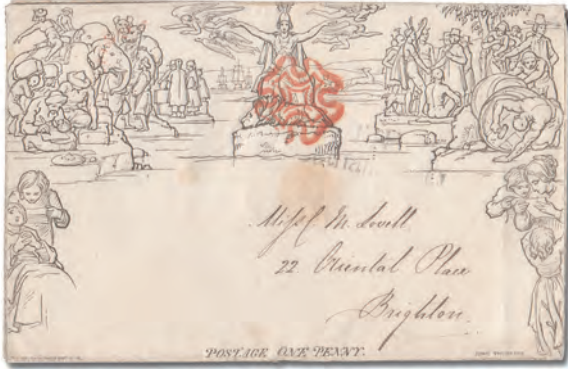 Miss C. M. Lovell
22 Oriental Place
Brighton.
POSTAGE ONE PENNY.